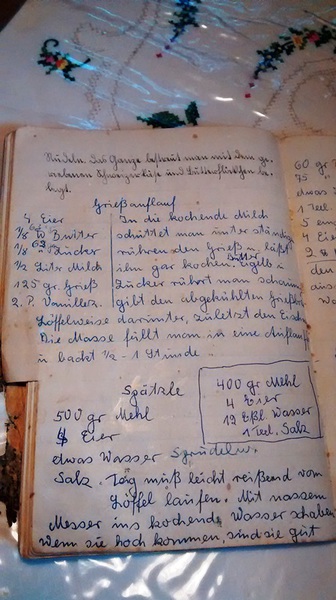 Nudeln. Das Ganze bestreut man mit dem ge-
riebenen Schweizerkäse und Butterflöckchen be-
legt.
Grießauflauf
4 Eier
1/8 tb Butter
62
1/8 " Zucker
62
1/2 Liter Milch
125 gr. Grieß
2. P. Vanillez.
In die kochende Milch
schüttet man unter ständig
rühren den Grieß u. läßt
ihn gar kochen. Eigelb u.
Butter
Zucker rührt man schaumig
gibt den abgekühlten Grießbrei
Löffelweise darunter, zuletzt den Eischn
Die Masse füllt man in eine Auflauff
u backt 1/2 - 1 Stunde.
Spätzle
500 gr Mehl
4 Eier
etwas Wasser Sprudelw.
Salz. Teig muß leicht reißend vom
Löffel laufen. Mit nassem
Messer ins kochende Wasser schaben
wenn sie hoch kommen, sind sie gut
400 gr Mehl
4 Eier
12 Eßl Wasser
1 Teel. Salz
60 gr
75 "
etwas
1 Teel.
5
4 Ei
den
aus